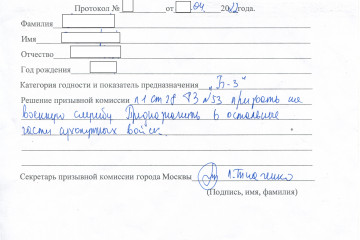 Протокол № от 04 2012года.
Фамилия
Имя
Отчество
Год рождения
Категория годности и показатель предназначения „Б-3"
Решение призывной комиссии п.1 ст 28 ФЗ №53 призвать на
военную службу Предназначить в остальные
части сухопутных войск.
Секретарь призывной комиссии города Москвы Л.Ткаченко
(Подпись, имя, фамилия)